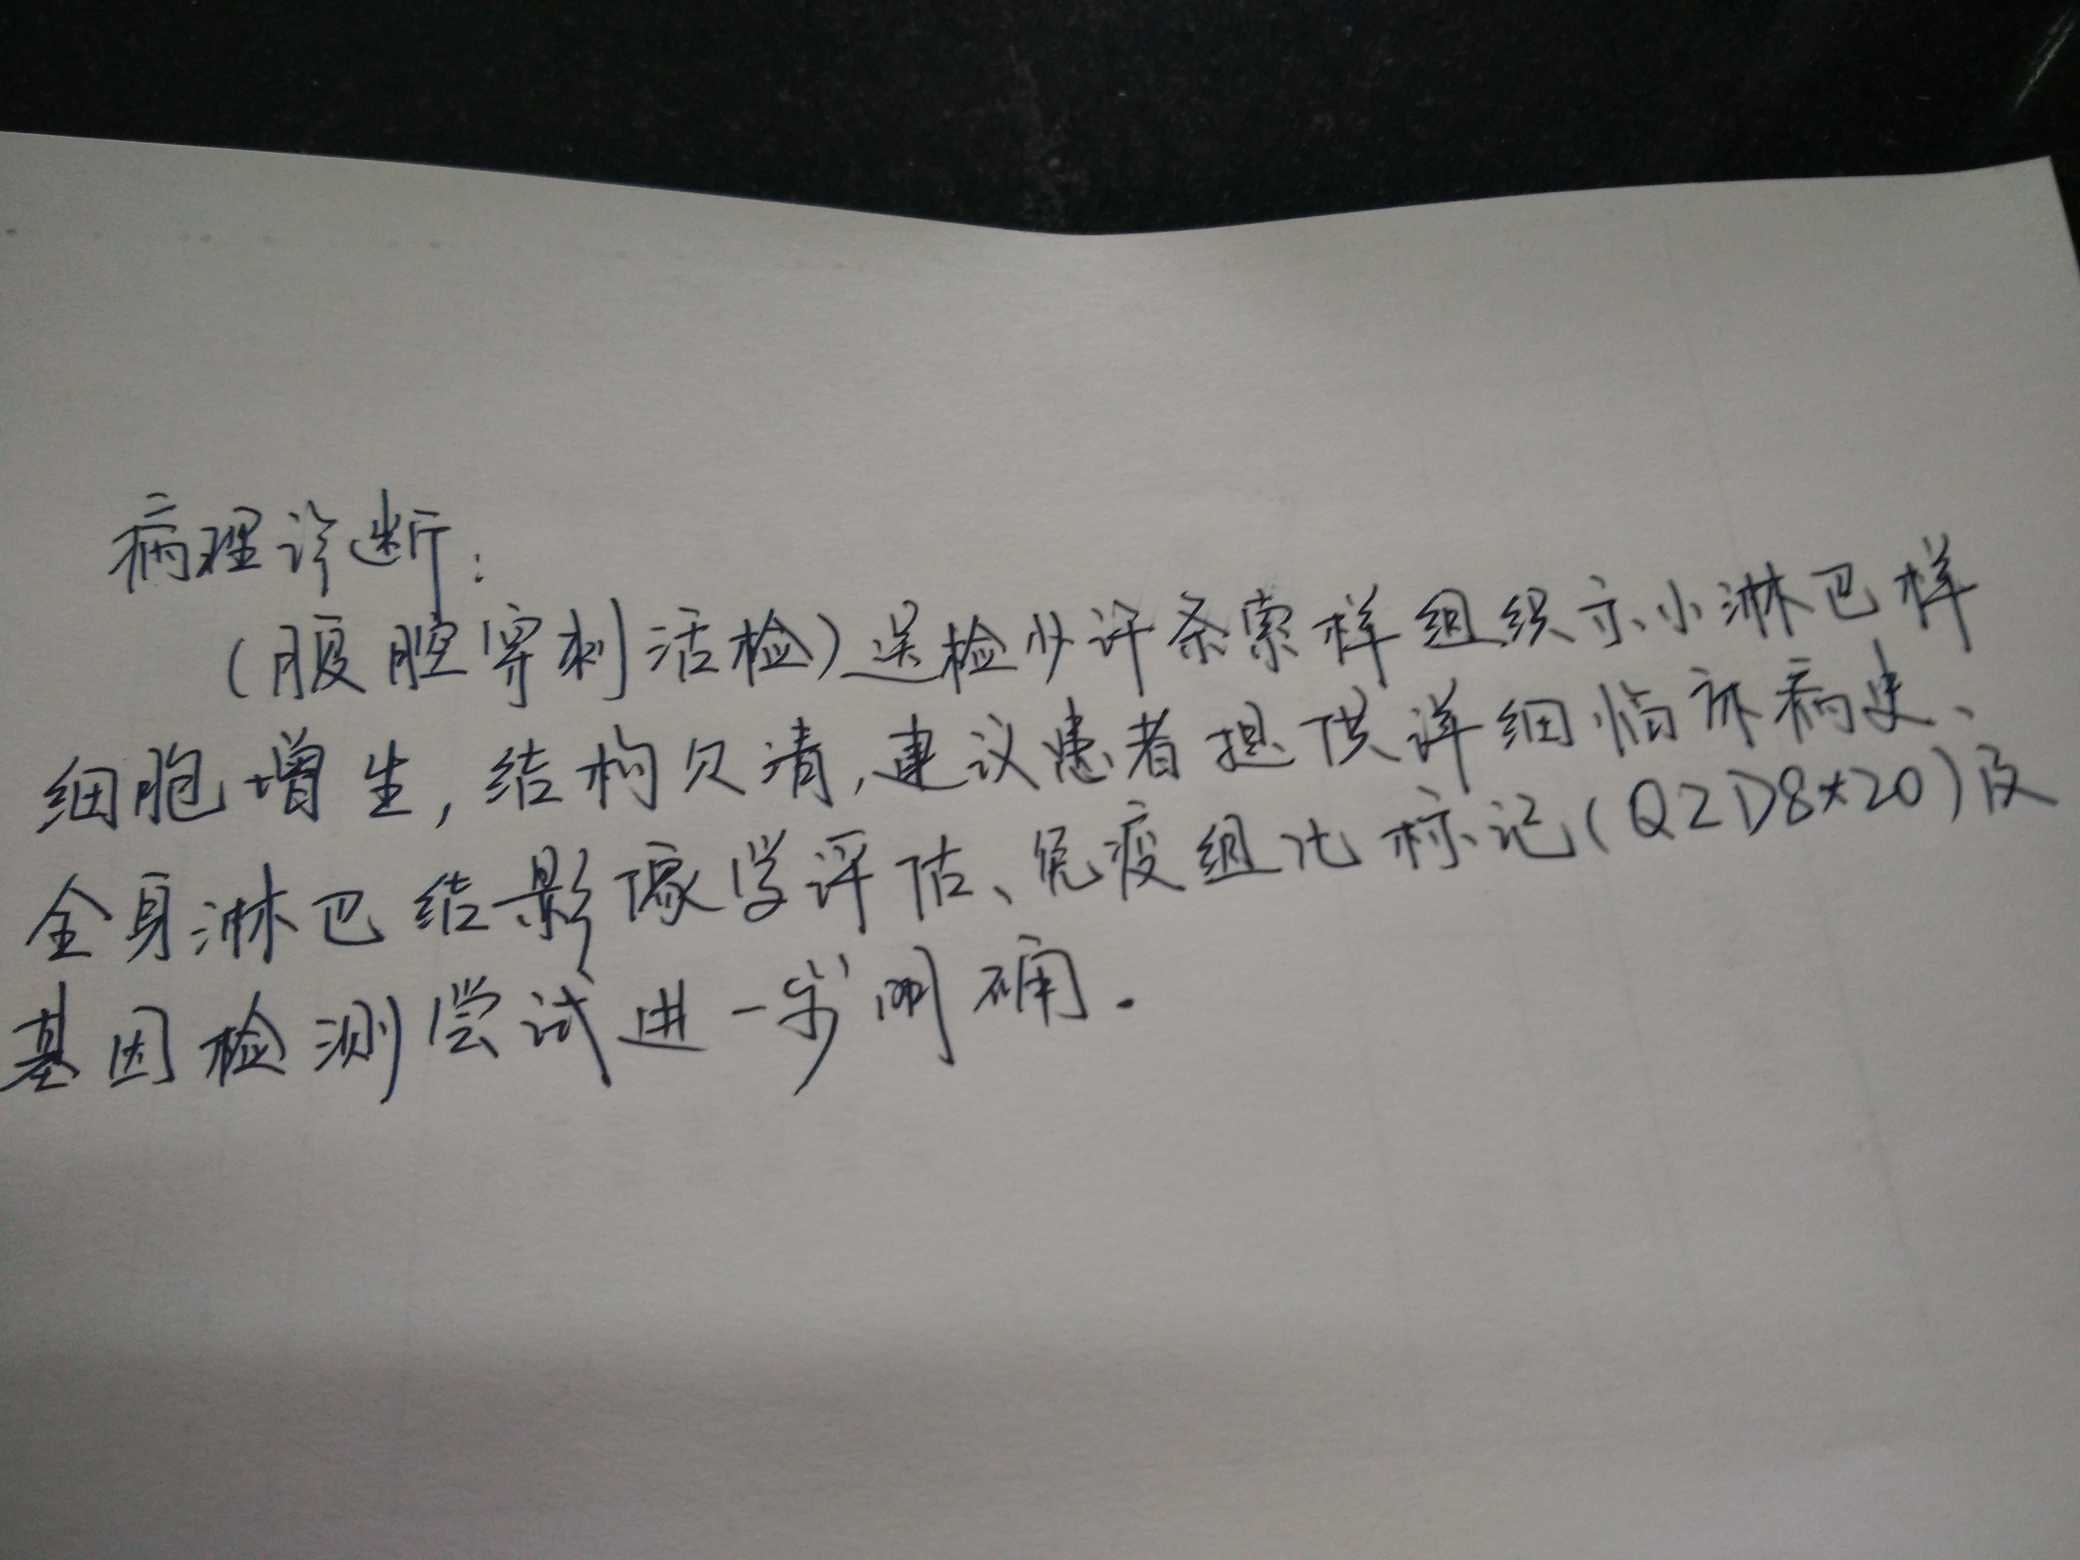 病理诊断:
(腹腔穿刺活检)送检少许条索样组织示小淋巴样
细胞增生,结构欠清,建议患者提供详细临床病史、
全身淋巴结影像学评估、免疫组化标记(QZD8*20)及
基因检测尝试进一步明确.